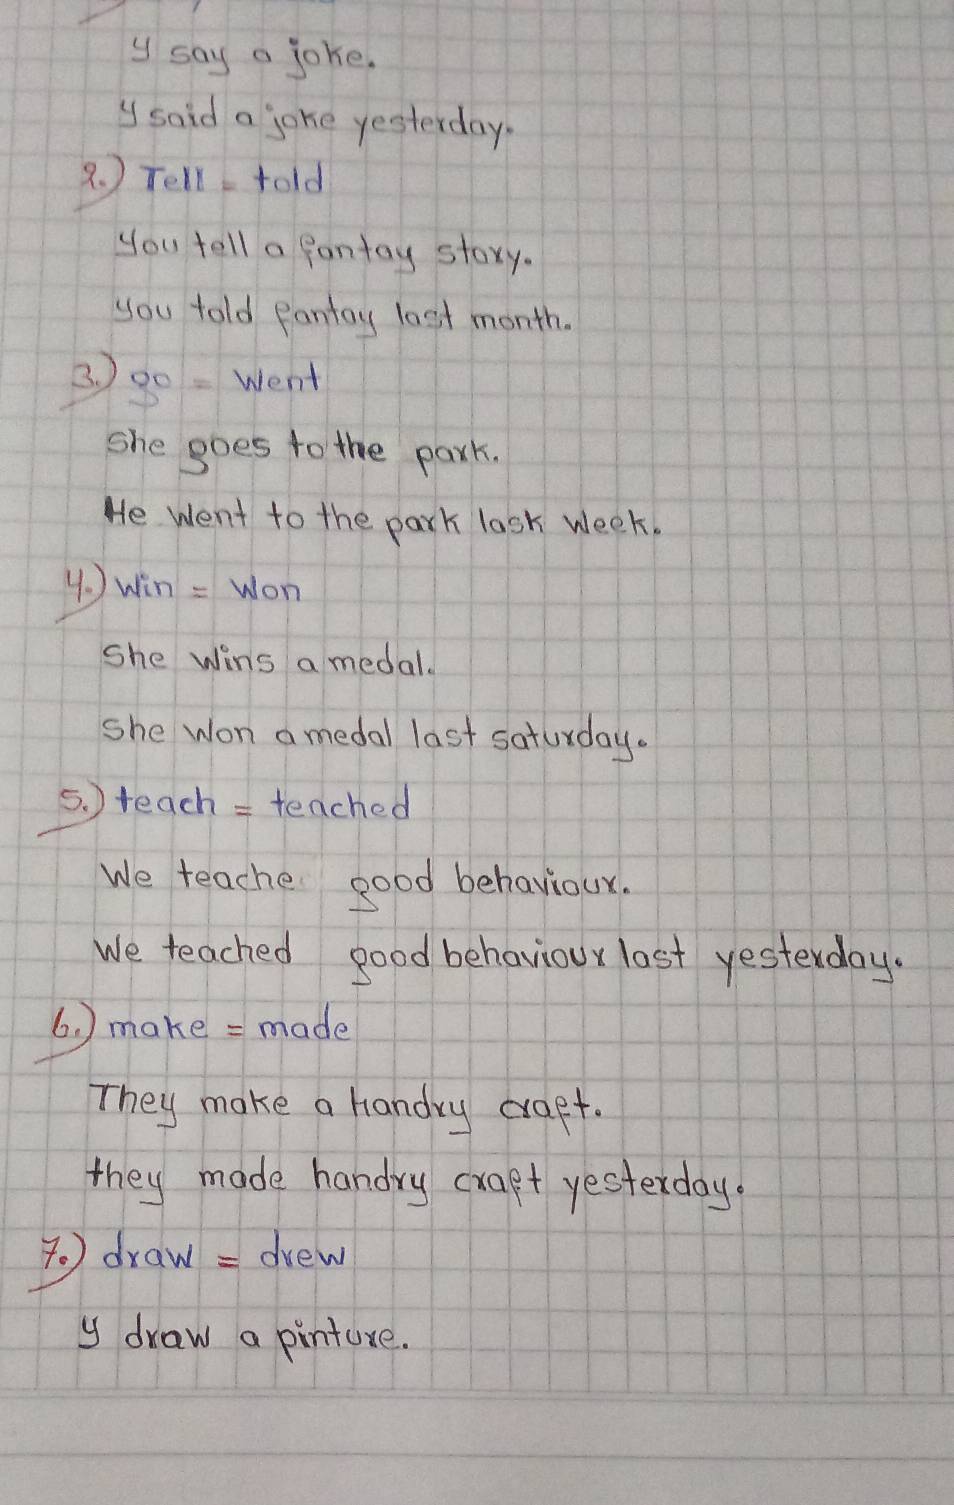 I say a joke.
I said a joke yesterday.
2.) Tell = told
You tell a fantay story.
you told fantay last month.
3.) go = went
She goes to the park.
He went to the park lask week.
4.) win = won
She wins a medal.
She won a medal last saturday.
5.) teach = teached
We teache good behaviour.
We teached good behaviour last yesterday.
6.) make = made
They make a handry craft.
they made handry craft yesterday.
7.) draw = drew
I draw a pinture.